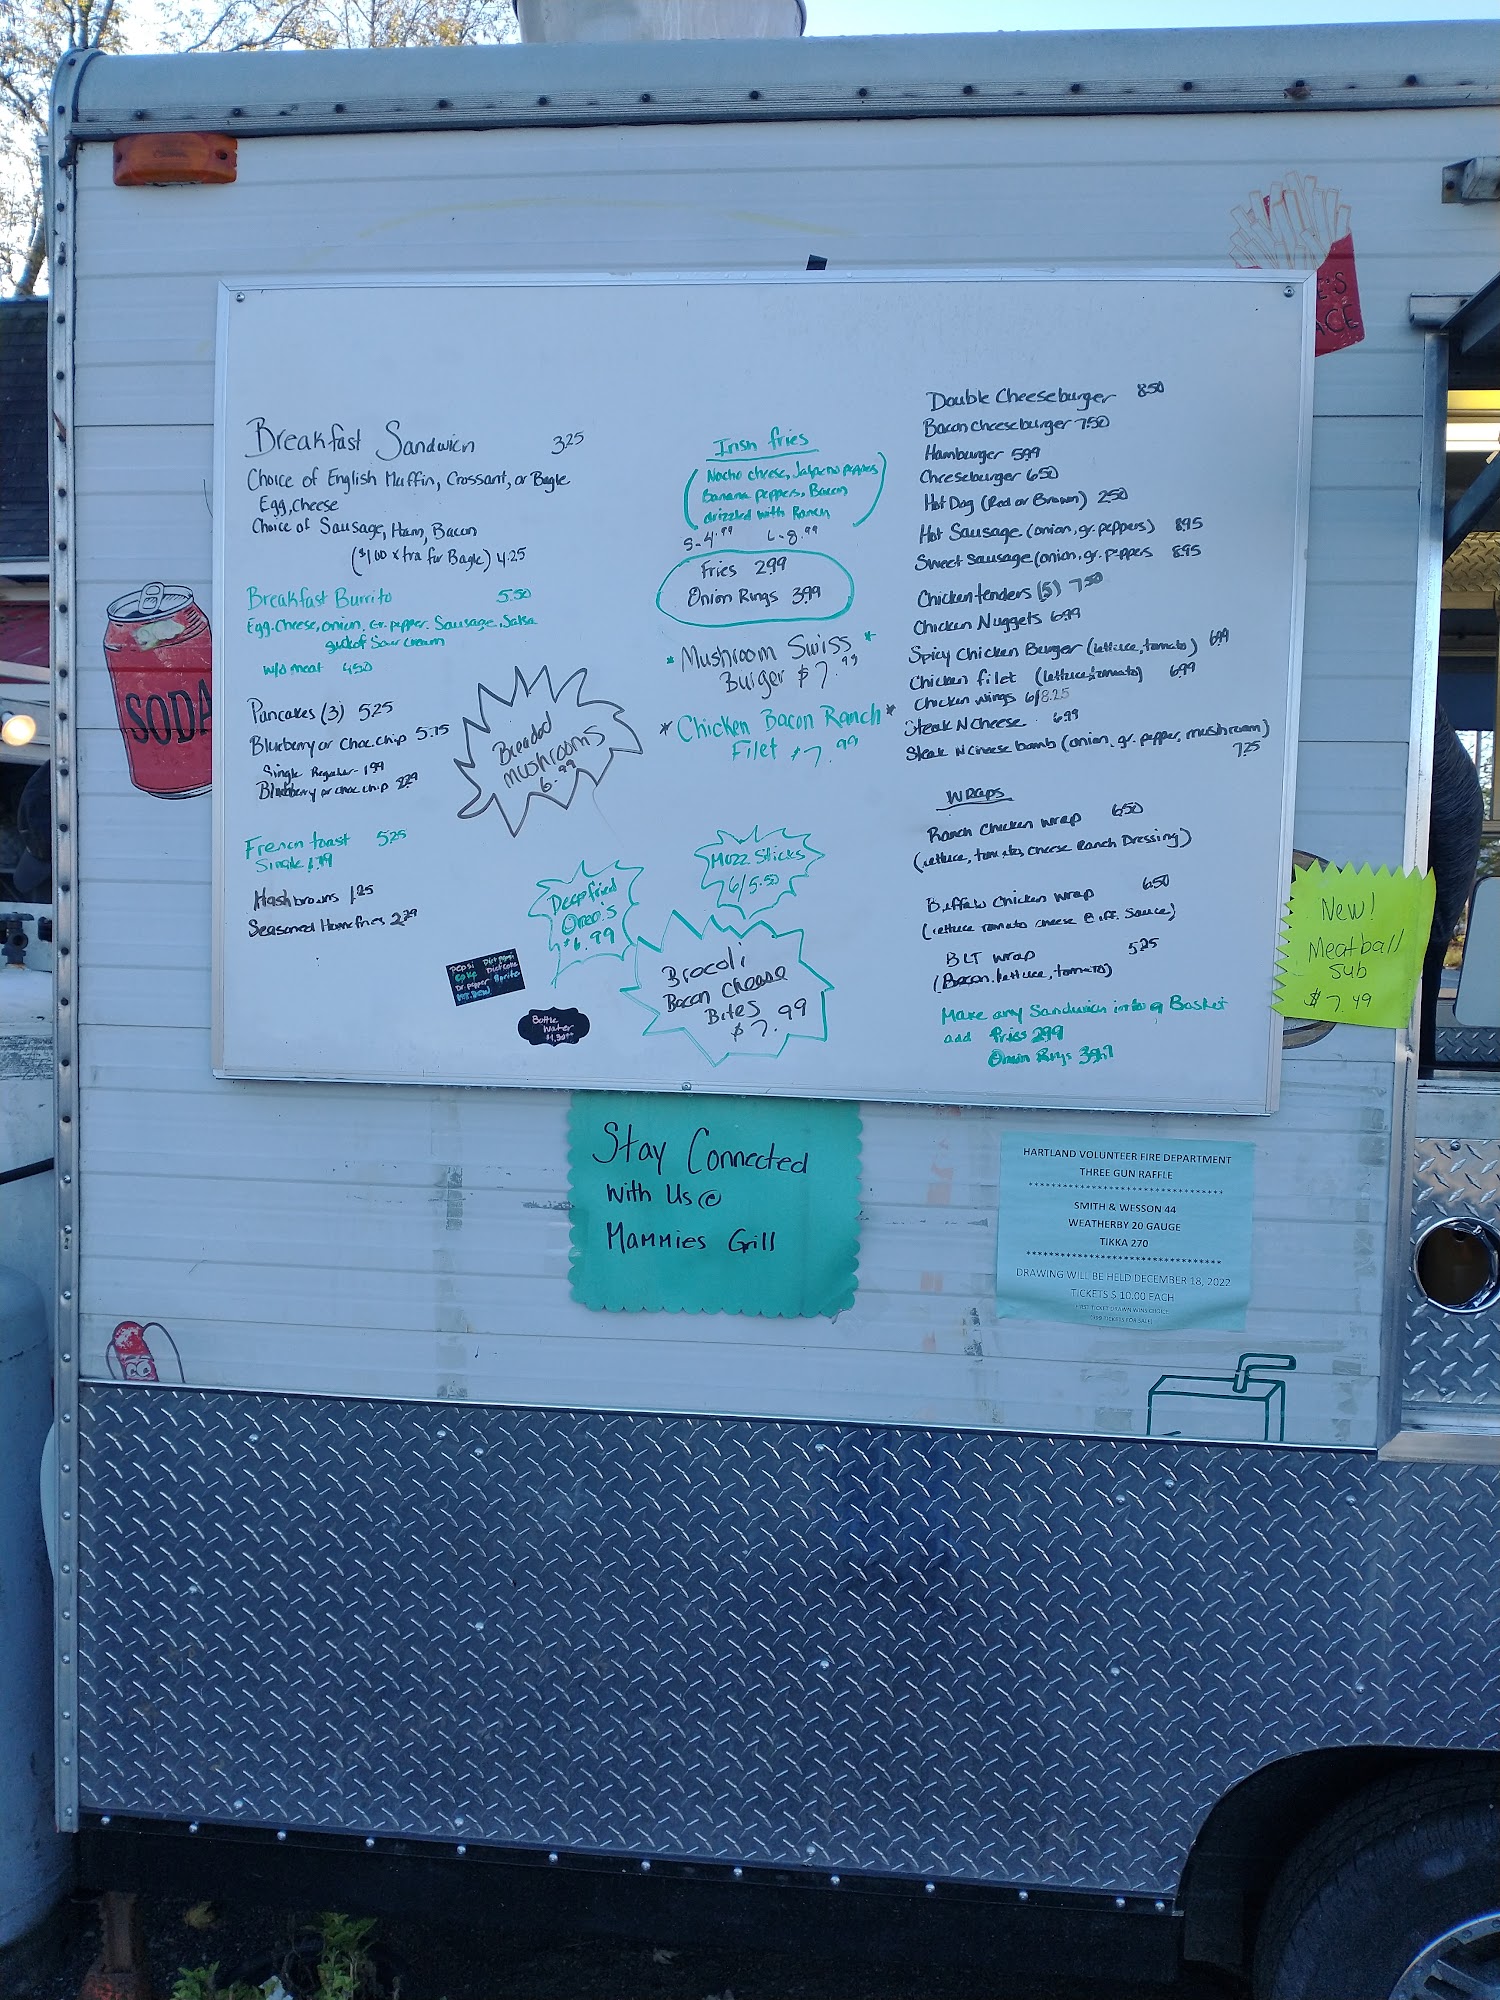 E'S
ACE
SODA
Breakfast Sandwich 3.25
Choice of English Muffin, Crossant, or Bagle
Egg, Cheese
Choice of Sausage, Ham, Bacon
($1.00 xtra for Bagle) 4.25
Breakfast Burrito 5.50
Egg. Cheese, onion, Gr. pepper. Sausage, Salsa
side of Sour cream
w/o meat 4.50
Pancakes (3) 5.25
Blueberry or Choc. chip 5.75
Single Regular - 1.99
Blueberry or choc. chip 2.29
French toast 5.25
Single 1.99
Hashbrowns 1.25
Seasoned Homefries 2.29
Breaded
mushrooms
6.99
Irish fries
(Nacho cheese, Jalpeno peppers
Banana peppers, Bacon
drizzled with Ranch)
S-4.99 L-8.99
Fries 2.99
Onion Rings 3.99
*Mushroom Swiss*
Burger $7.99
*Chicken Bacon Ranch*
Filet $7.99
Mozz. Sticks
6/5.50
Deep fried
Oreo's
$6.99
Pepsi Diet pepsi
Coke Diet coke
Dr. pepper Sprite
Mt. Dew
Bottle
Water
Brocoli
Bacon Cheese
Bites
$7.99
Double Cheeseburger 8.50
Bacon cheeseburger 7.50
Hamburger 5.99
Cheeseburger 6.50
Hot Dog (Red or Brown) 2.50
Hot Sausage (onion, gr. peppers) 8.95
Sweet Sausage (onion, gr. peppers 8.95
Chicken tenders (5) 7.50
Chicken Nuggets 6.99
Spicy Chicken Burger (lettuce, tomato) 6.99
Chicken filet (lettuce, tomato) 6.99
Chicken wings 6/8.25
Steak N Cheese 6.99
Steak N Cheese bomb (onion, gr. pepper, mushroom)
7.25
Wraps
Ranch Chicken wrap 6.50
(lettuce, tomato, cheese Ranch Dressing)
Buffalo Chicken wrap 6.50
(lettuce Tomato cheese Buff. Sauce)
BLT wrap 5.25
(Bacon. lettuce, tomato)
Make any Sandwich into a Basket
add fries 2.99
Onion Rings 3.99
New!
Meatball
Sub
$7.49
Stay Connected
With Us @
Mammies Grill
HARTLAND VOLUNTEER FIRE DEPARTMENT
THREE GUN RAFFLE
SMITH & WESSON 44
WEATHERBY 20 GAUGE
TIKKA 270
DRAWING WILL BE HELD DECEMBER 18, 2022
TICKETS $ 10.00 EACH
FIRST TICKET DRAWN WINS CHOICE